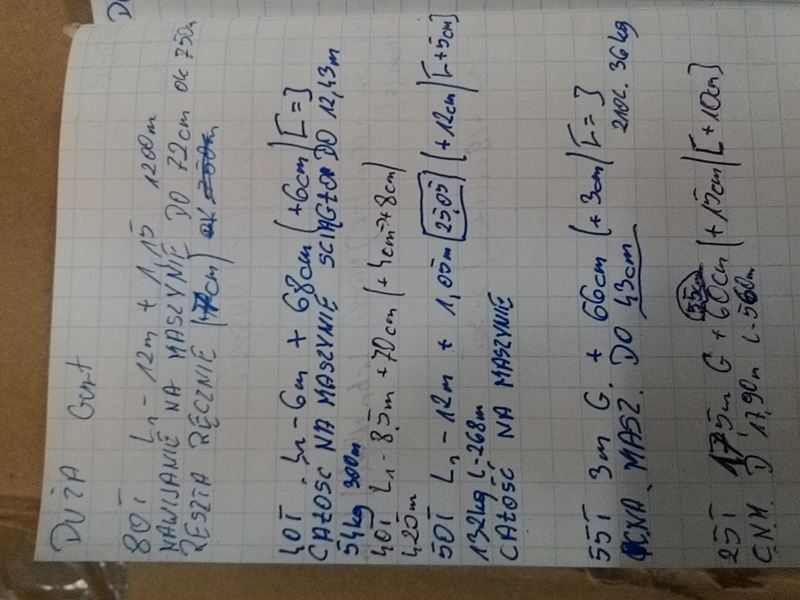 DUŻA Gont
80T Ln - 12m + 1,15 1200m
NAWIJANIE NA MASZYNIE DO 72cm ok 750m
RESZTA RĘCZNIE (+7cm)
40T Ln - 6m + 68cm (+6cm) [L=]
CAŁOŚĆ NA MASZYNIE ŚCIĄGŁO DO 12,43m
54kg 300m
40T Ln - 8,5m + 70cm (+4cm=>+8cm)
425m
50T Ln - 12m + 1,05m [25,05] (+12cm) [L+5cm]
132kg L-268m
CAŁOŚĆ NA MASZYNIE
55T 3m G. + 66cm (+3cm) [L=]
C.NA MASZ. DO 43cm 210L. 36kg
55cm
25T 175m G + 60cm (+15cm) [+10cm]
C.N.M. D 17,90m L-560m